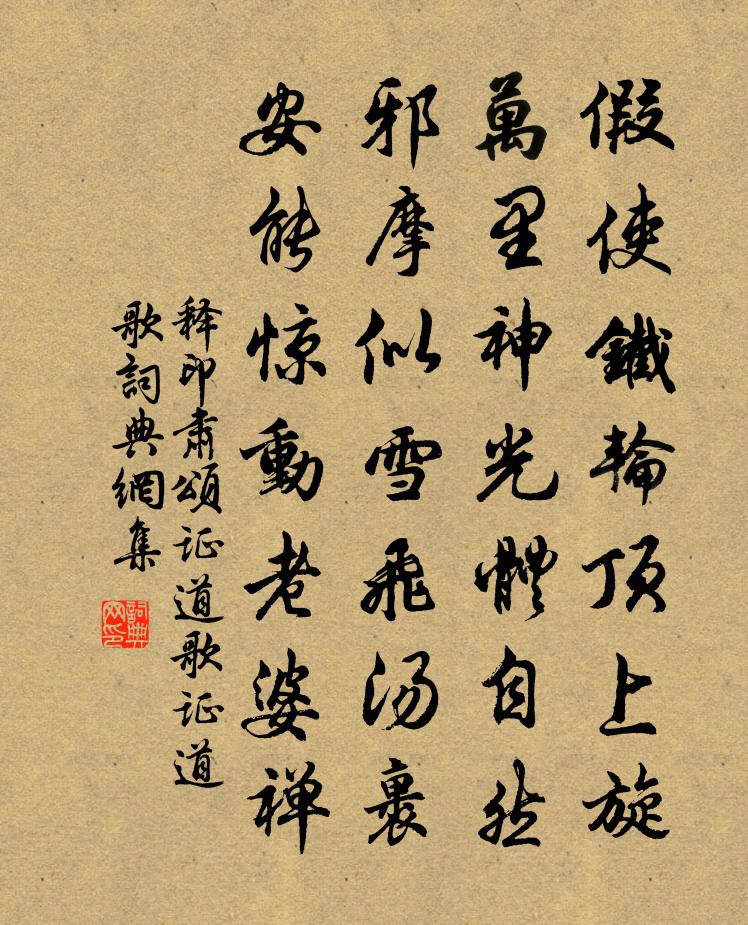 假使鐵輪頂上旋
萬里神光體自然
邪摩似雪飛汤裹
安能惊動老婆禅
释印肅頌证道歌证道
歌詞典網集
詞典网印